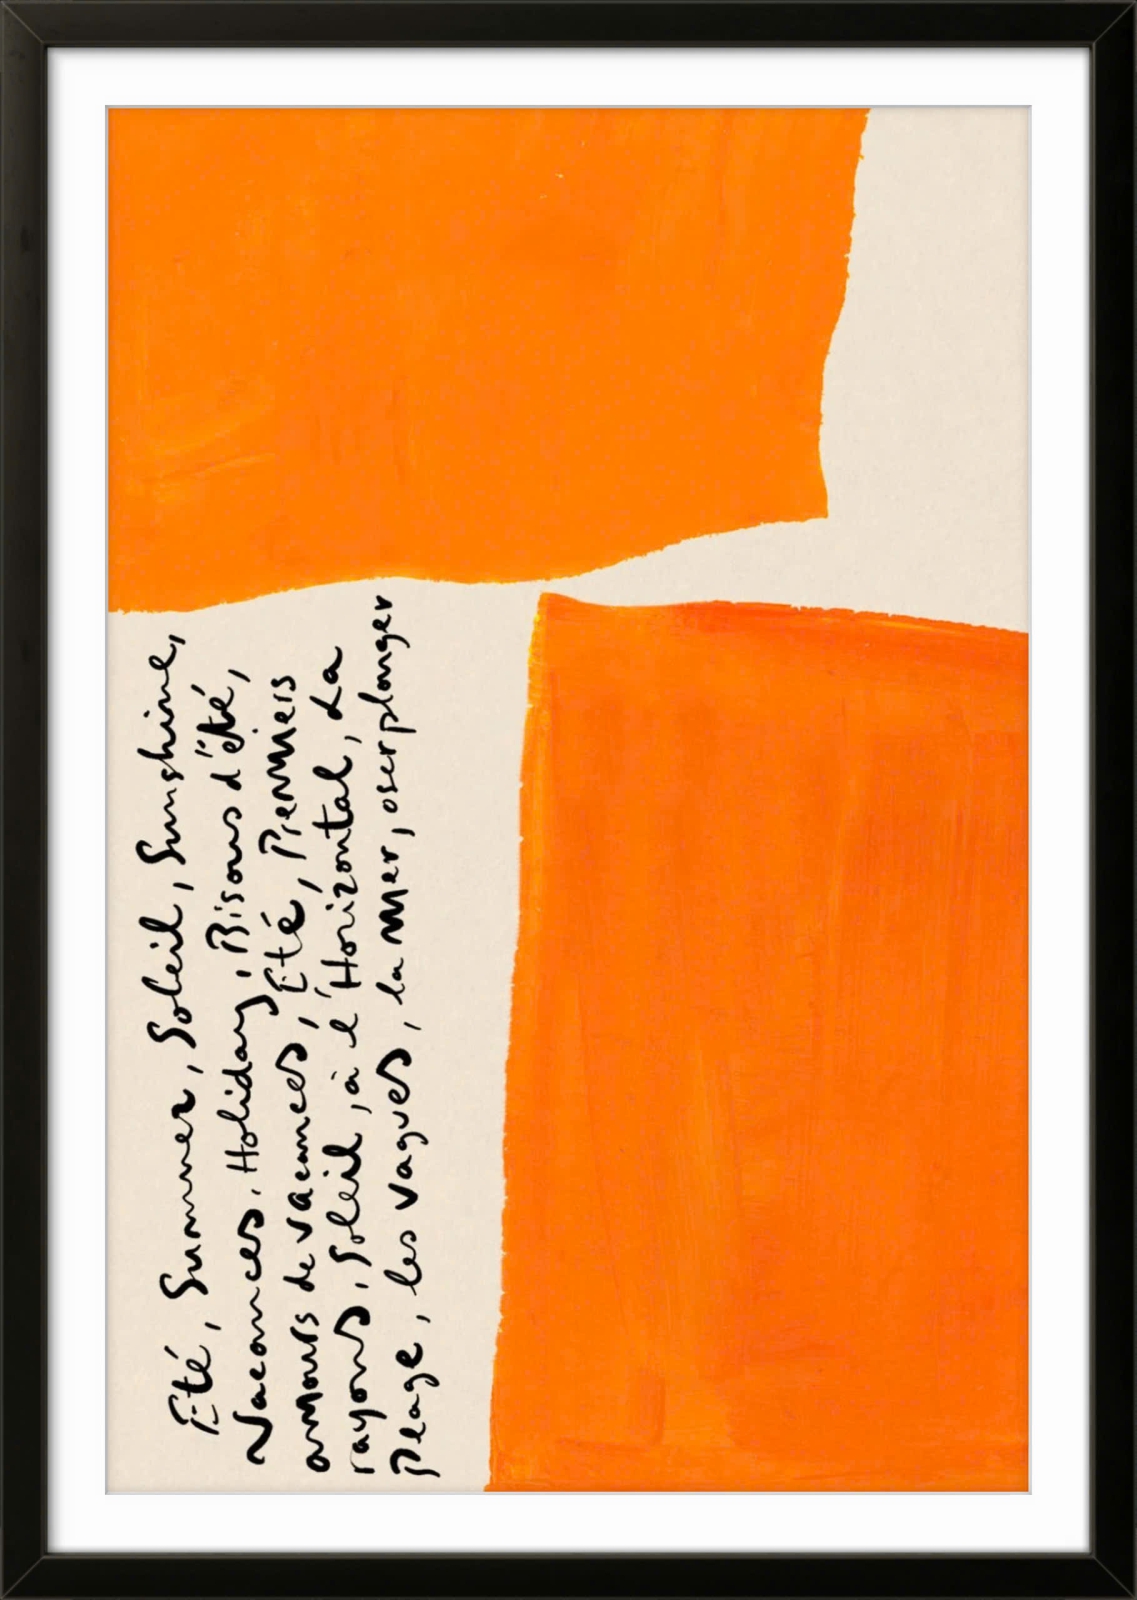 Eté, Summer, Soleil, Sunshine,
Vacances. Holiday, Bisous d'été,
amours de vacances, Eté, Premiers
rayons, Soleil, à l'Horizontal, La
Plage, les vagues, la mer, oser plonger